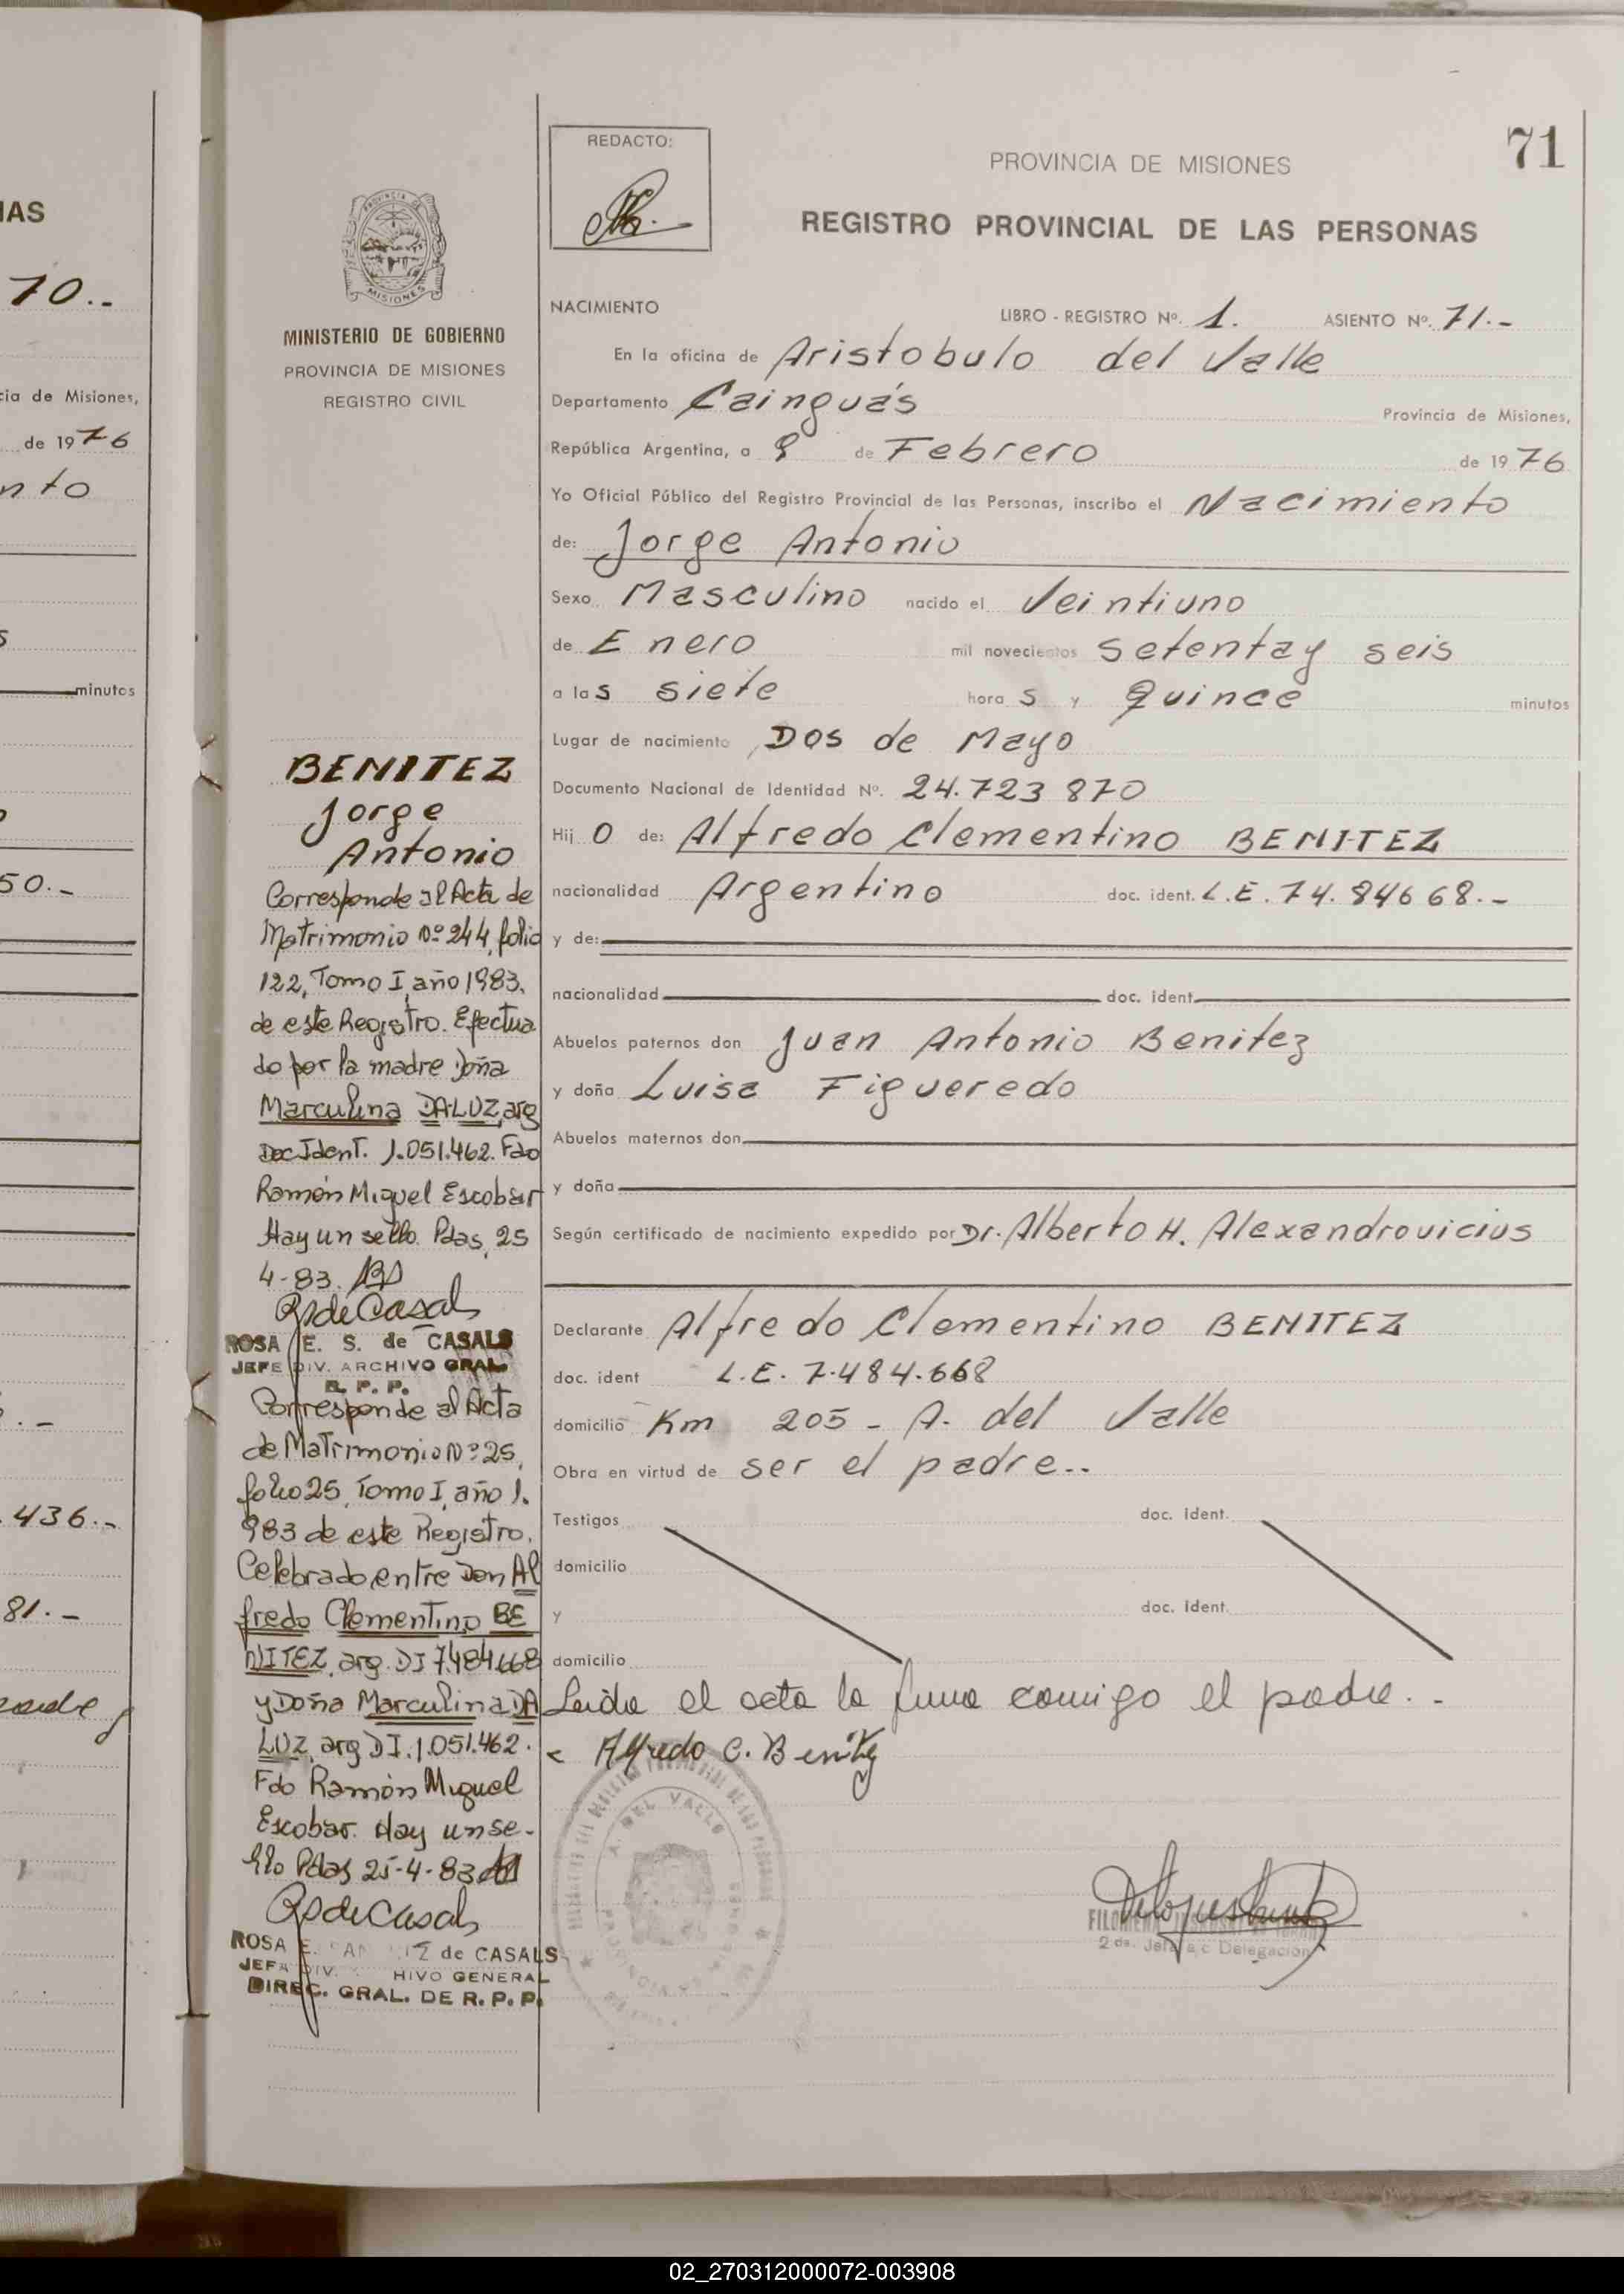 IAS
70.-
cia de Misiones,
de 1976
nto
s
minutos
50.-
436.-
81.-
71
REDACTO:
PROVINCIA DE MISIONES
REGISTRO PROVINCIAL DE LAS PERSONAS
PROVINCIA DE
MISIONES
MINISTERIO DE GOBIERNO
PROVINCIA DE MISIONES
REGISTRO CIVIL
BENITEZ
Jorge
Antonio
Corresponde al Acta de
Matrimonio Nº 244, folio
122, Tomo I, año 1983.
de este Registro. Efectua
do por la madre Doña
Marculina DA LUZ, arg
Doc Ident. 1.051.462. Fdo
Ramón Miguel Escobar
Hay un sello. Pdas, 25
4-83.
RSdeCasals
ROSA E. S. de CASALS
JEFE DIV. ARCHIVO GRAL.
R. P. P.
Corresponde al Acta
de Matrimonio Nº 25,
folio 25, Tomo I, año 1.
983 de este Registro.
Celebrado entre Don Al
fredo Clementino BE
NITEZ, arg. DI 7.484.668
y Doña Marculina DA
LUZ, arg DI. 1.051.462.
Fdo Ramón Miguel
Escobar. Hay un se-
llo Pdas 25-4-83
RSdeCasals
ROSA E. de CASALS
JEFA DIV. HIVO GENERAL
DIREC. GRAL. DE R. P. P.
NACIMIENTO LIBRO - REGISTRO Nº. 1. ASIENTO Nº. 71.-
En la oficina de Aristobulo del Valle
Departamento Cainguás Provincia de Misiones,
República Argentina, a 9 de Febrero de 1976
Yo Oficial Público del Registro Provincial de las Personas, inscribo el Nacimiento
de: Jorge Antonio
Sexo Masculino nacido el Veintiuno
de Enero mil novecientos setenta y seis
a las siete horas y Quince minutos
Lugar de nacimiento Dos de Mayo
Documento Nacional de Identidad Nº. 24.723 870
Hijo de: Alfredo Clementino BENITEZ
nacionalidad Argentino doc. ident. L.E. 74.84668.-
y de:
nacionalidad doc. ident.
Abuelos paternos don Juan Antonio Benitez
y doña Luisa Figueredo
Abuelos maternos don
y doña
Según certificado de nacimiento expedido por Dr. Alberto H. Alexandrovicius
Declarante Alfredo Clementino BENITEZ
doc. ident L.E. 7.484.668
domicilio Km 205 - A. del Valle
Obra en virtud de ser el padre..
Testigos doc. ident.
domicilio
y doc. ident.
domicilio
Leida el acta la firma comigo el padre.-
Alfredo C. Benitez
A. DEL VALLE
2da. Jefa a/c Delegación
02_270312000072-003908